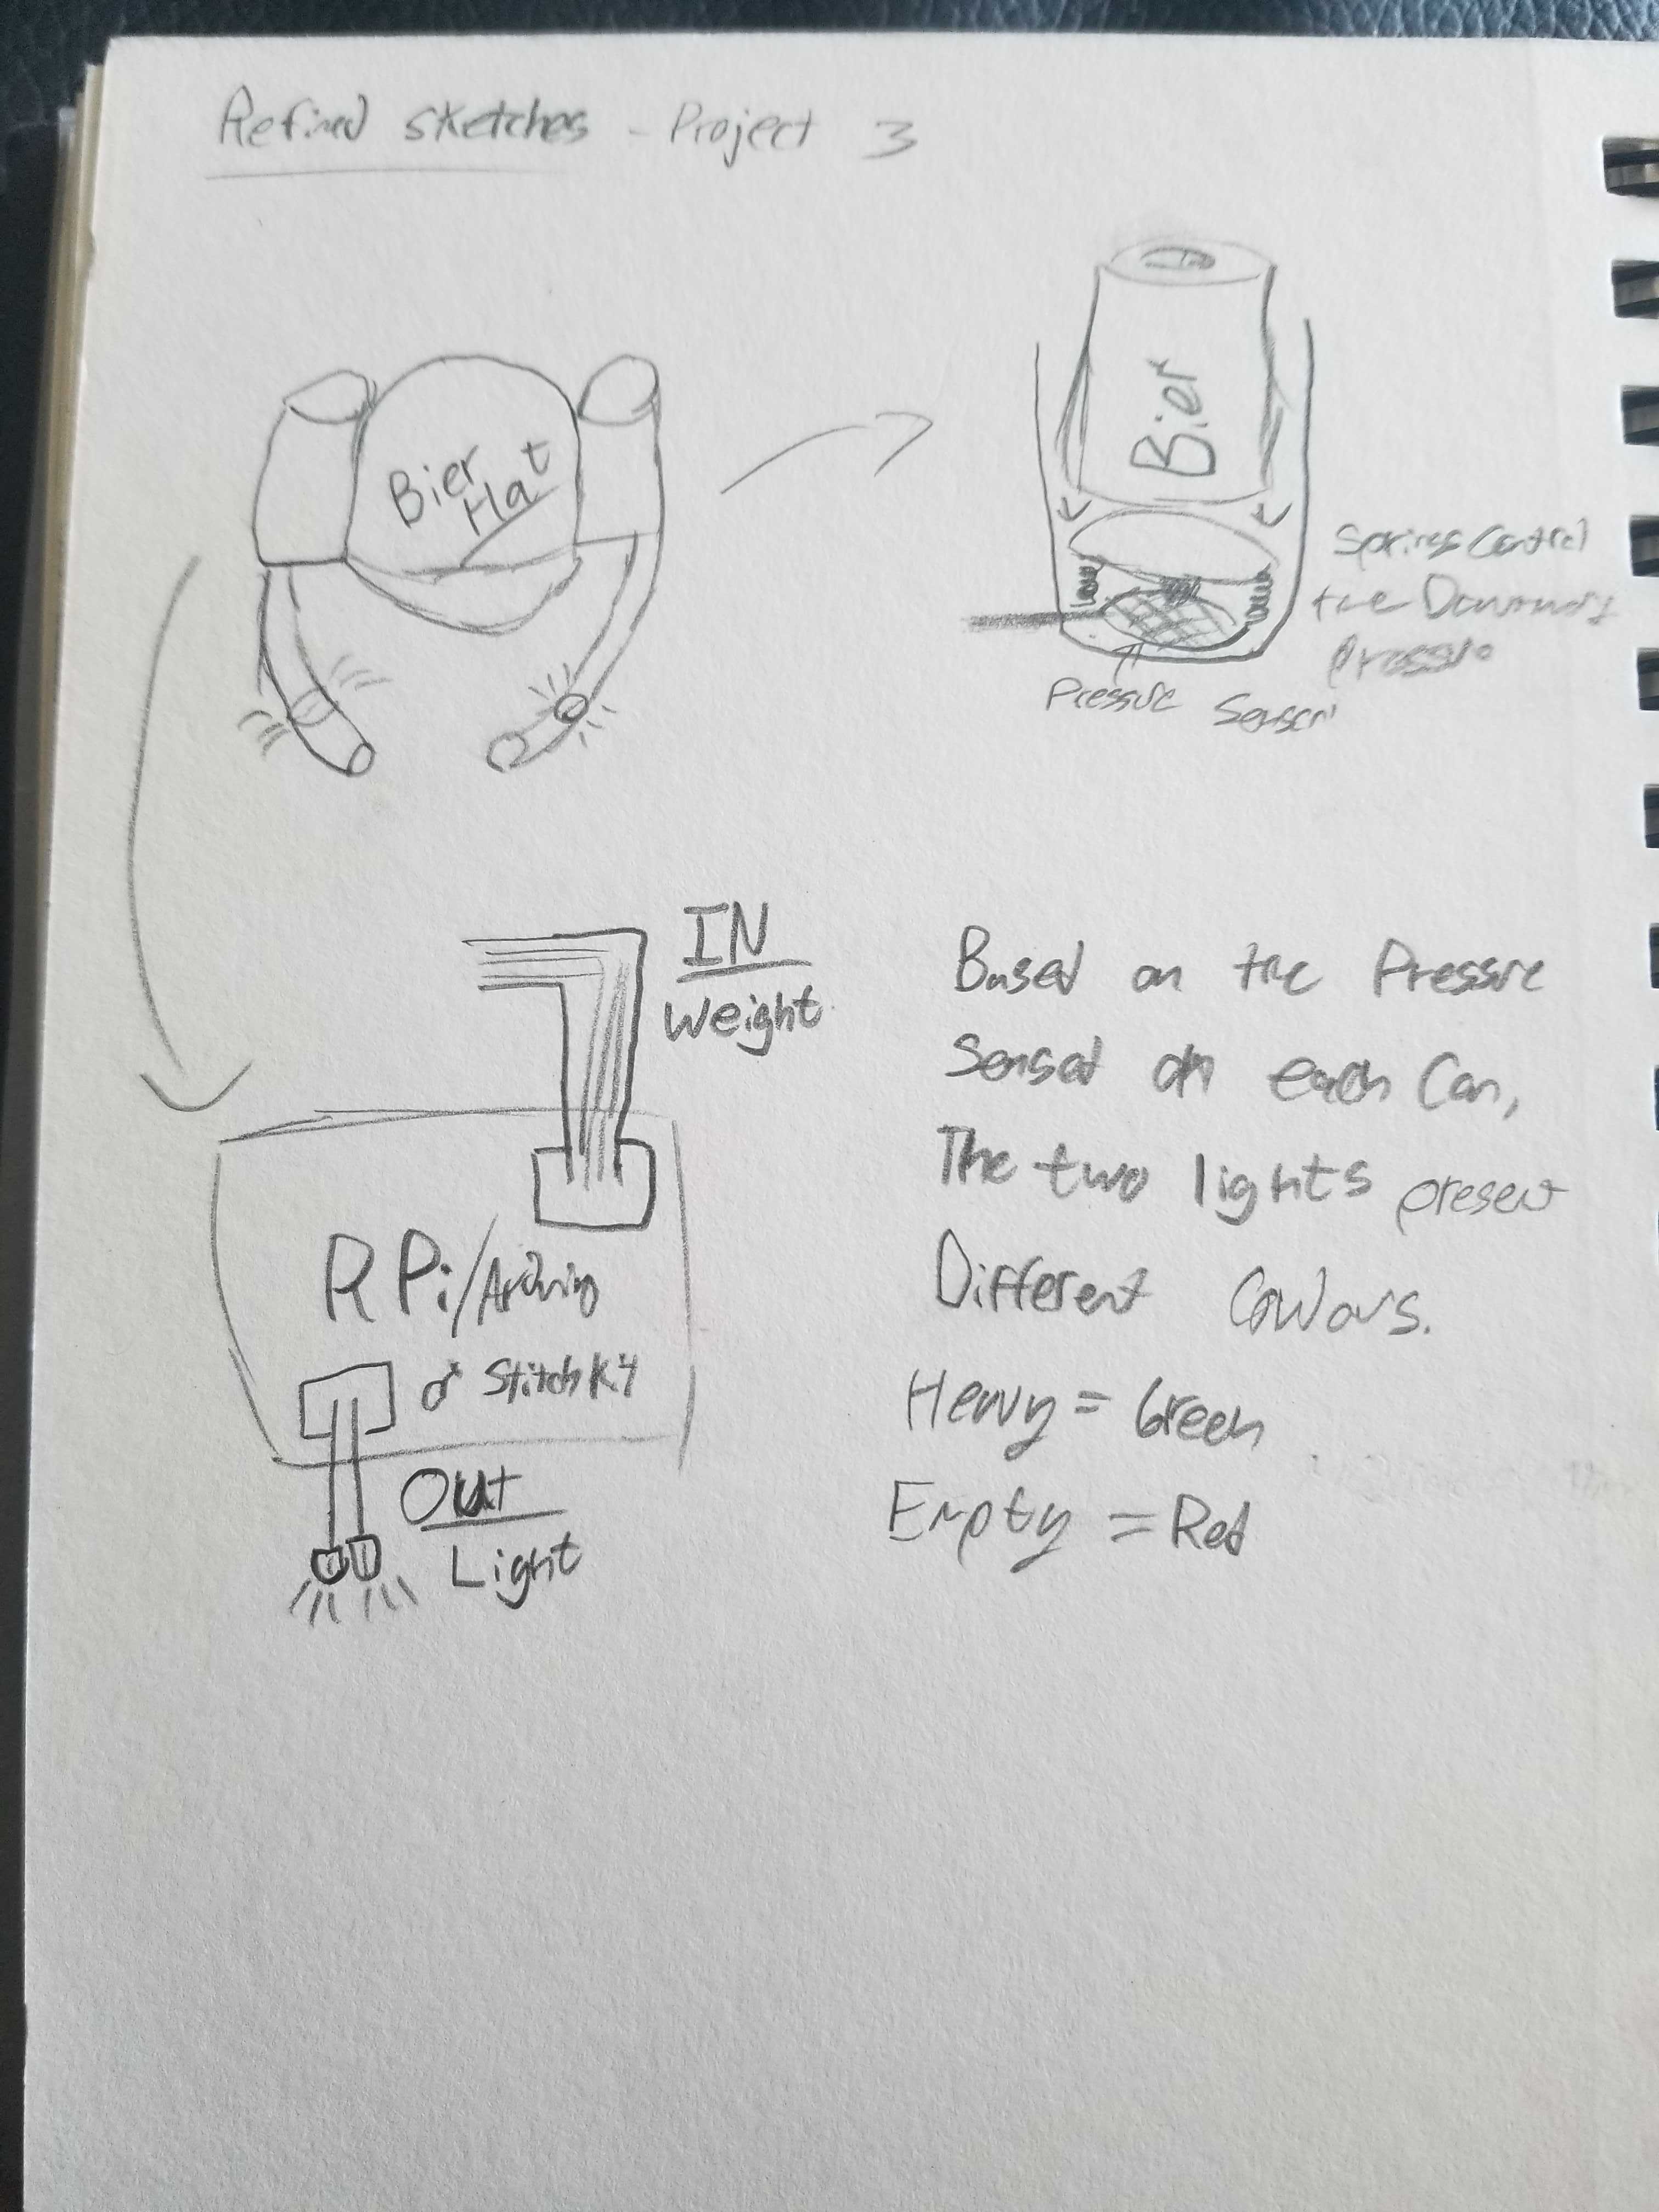 Refined sketches - Project 3
Bier
Hat
Bier
Springs Control
the Downward
pressure
Pressure Sensor
IN
Weight
RPi/Arduino
or StitchKit
Out
Light
Based on the Pressure
Sensed on each Can,
The two lights present
Different Colours.
Heavy = Green
Empty = Red